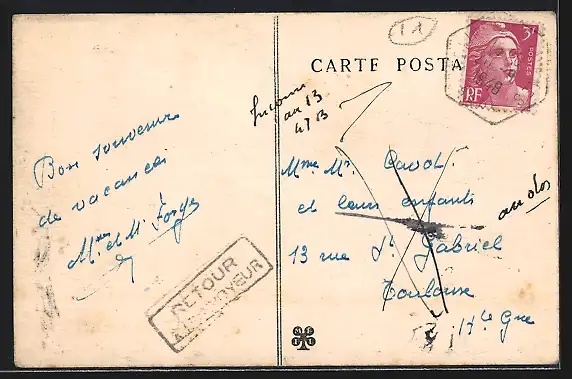 1A
CARTE POSTA
3F
POSTES
RF
1948
Inconnu
au 13
47 B
Bon souvenir
de vacances
Mme et Mr Forges
Mme Mr. Cavol.
et leurs enfants
au dos
13 rue St Gabriel
Toulouse
Hte Gne
RETOUR
A L'ENVOYEUR